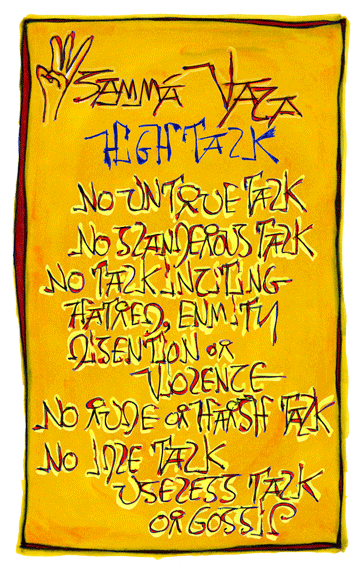 3 SAMMÁ VAZA
HIGH TALK
NO UNTRUE TALK
NO SLANDEROUS TALK
NO TALK INCITING
HATRED, ENMITY
DISENTION OR
VIOLENCE
NO RUDE OR HARSH TALK
NO IDLE TALK
USELESS TALK
OR GOSSIP